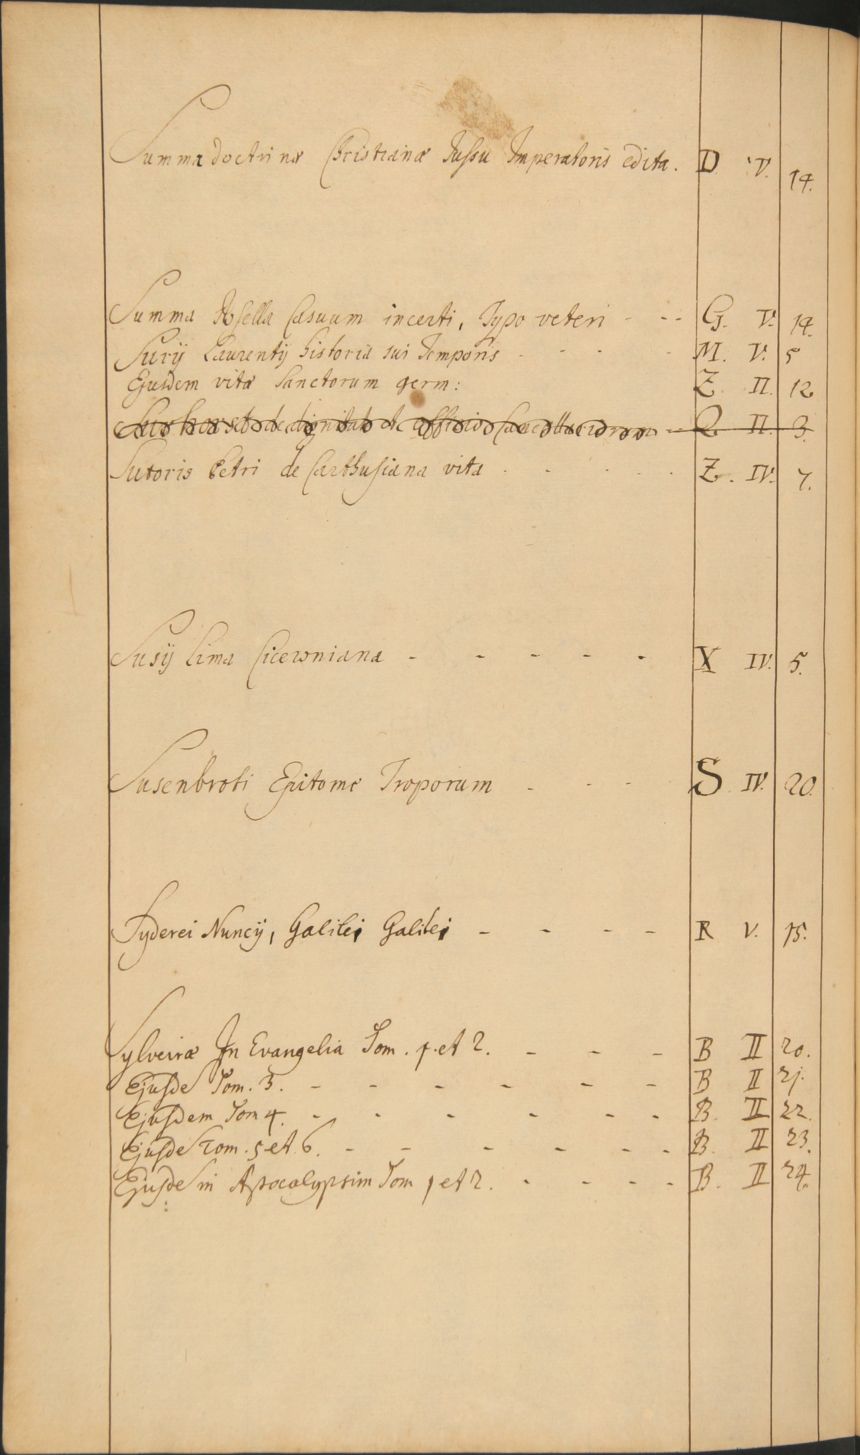 Summa doctrinæ Christianæ Jussu Imperatoris edita. D V. 14.
Summa Rosella Casuum incerti, Typo veteri - - - G. V. 14.
Surij Laurentij historia sui Temporis - - - - M. V. 5
Ejusdem vitæ Sanctorum germ: Z. II. 12
de dignitate et officio Q II. 3.
Sutoris Petri de Carthusiana vita - - - - - Z. IV. 7.
Susij Lima Ciceroniana - - - - - X IV. 5.
Susenbroti Epitome Troporum - - - S IV. 20.
Syderei Nuncij, Galilei Galilei - - - - R V. 15.
Sylveiræ In Evangelia Tom. 1. et 2. - - - B II 20.
Ejusde Tom. 3. - - - - - - B II 21.
Ejusdem Tom 4. - - - - - - B. II 22.
Ejusde Tom. 5 et 6. - - - - - - B. II 23.
Ejusde in Apocalypsim Tom 1 et 2. - - - - B. II 24.